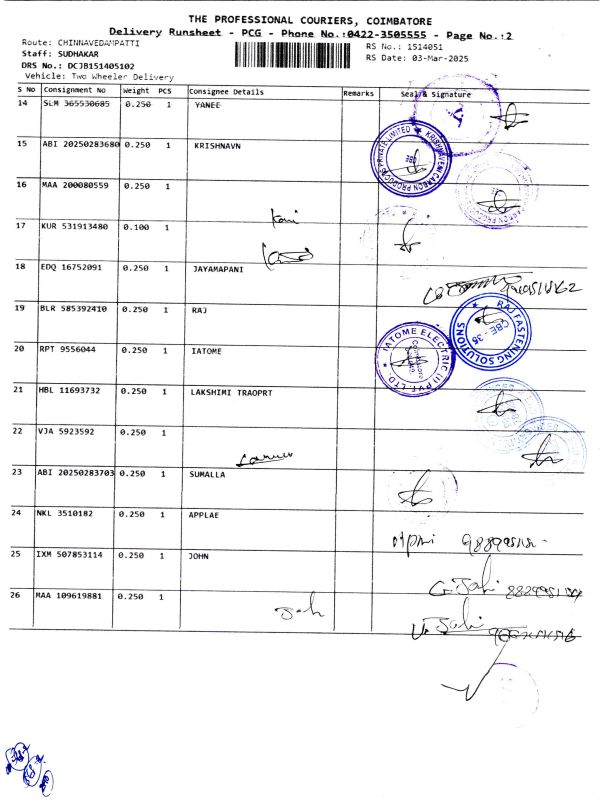 THE PROFESSIONAL COURIERS, COIMBATORE
Delivery Runsheet - PCG - Phone No.:0422-3505555 - Page No.:2
Route: CHINNAVEDAMPATTI
RS No.: 1514051
Staff: SUDHAKAR
RS Date: 03-Mar-2025
DRS No.: DCJB151405102
Vehicle: Two Wheeler Delivery
S No Consignment No Weight PCS Consignee Details Remarks Seal & Signature
14 SLM 365530605 0.250 1 YANEE
15 ABI 20250283680 0.250 1 KRISHNAVN
KRISHNAVENI CARBON PRODUCTS PRIVATE LIMITED
16 MAA 200080559 0.250 1
17 KUR 531913480 0.100 1
18 EDQ 16752091 0.250 1 JAYAMAPANI
19 BLR 585392410 0.250 1 RAJ
RAJ FASTENING SOLUTIONS
CBE - 35
20 RPT 9556044 0.250 1 IATOME
IATOME ELECTRIC (I) PVT. LTD.
21 HBL 11693732 0.250 1 LAKSHIMI TRAOPRT
22 VJA 5923592 0.250 1
23 ABI 20250283703 0.250 1 SUMALLA
24 NKL 3510182 0.250 1 APPLAE
25 IXM 507853114 0.250 1 JOHN
26 MAA 109619881 0.250 1